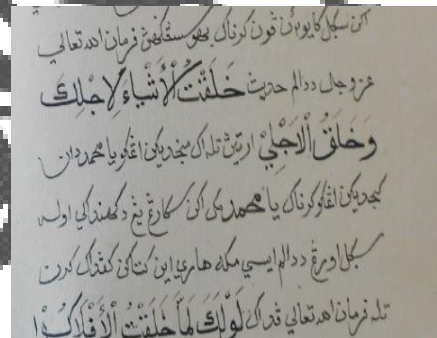 اكن سكل كايوبڽن ڤون كرناك بهوسڽ فرمان الله تعالى
عز وجل ددالم حديث خَلَقْتُ الْأَشْيَاءَ لِأَجْلِكَ
وَخَلَقْ الْاَجْلِيْ ارتيڽ تله اك منجديكن اڠكو يا محمد دان
كجديكن اڠكو كرناك يا محمد مك اكن سكارڠ يڠ دكهندكي اوله
سكل اورڠ ددالم ايسي مكه هاري اين كتاكن كڤداك كرن
تله فرمان الله تعالى ڤداك لَوْلَكَ لَمَا خَلَقْتُ الْأَفْلَاكَ